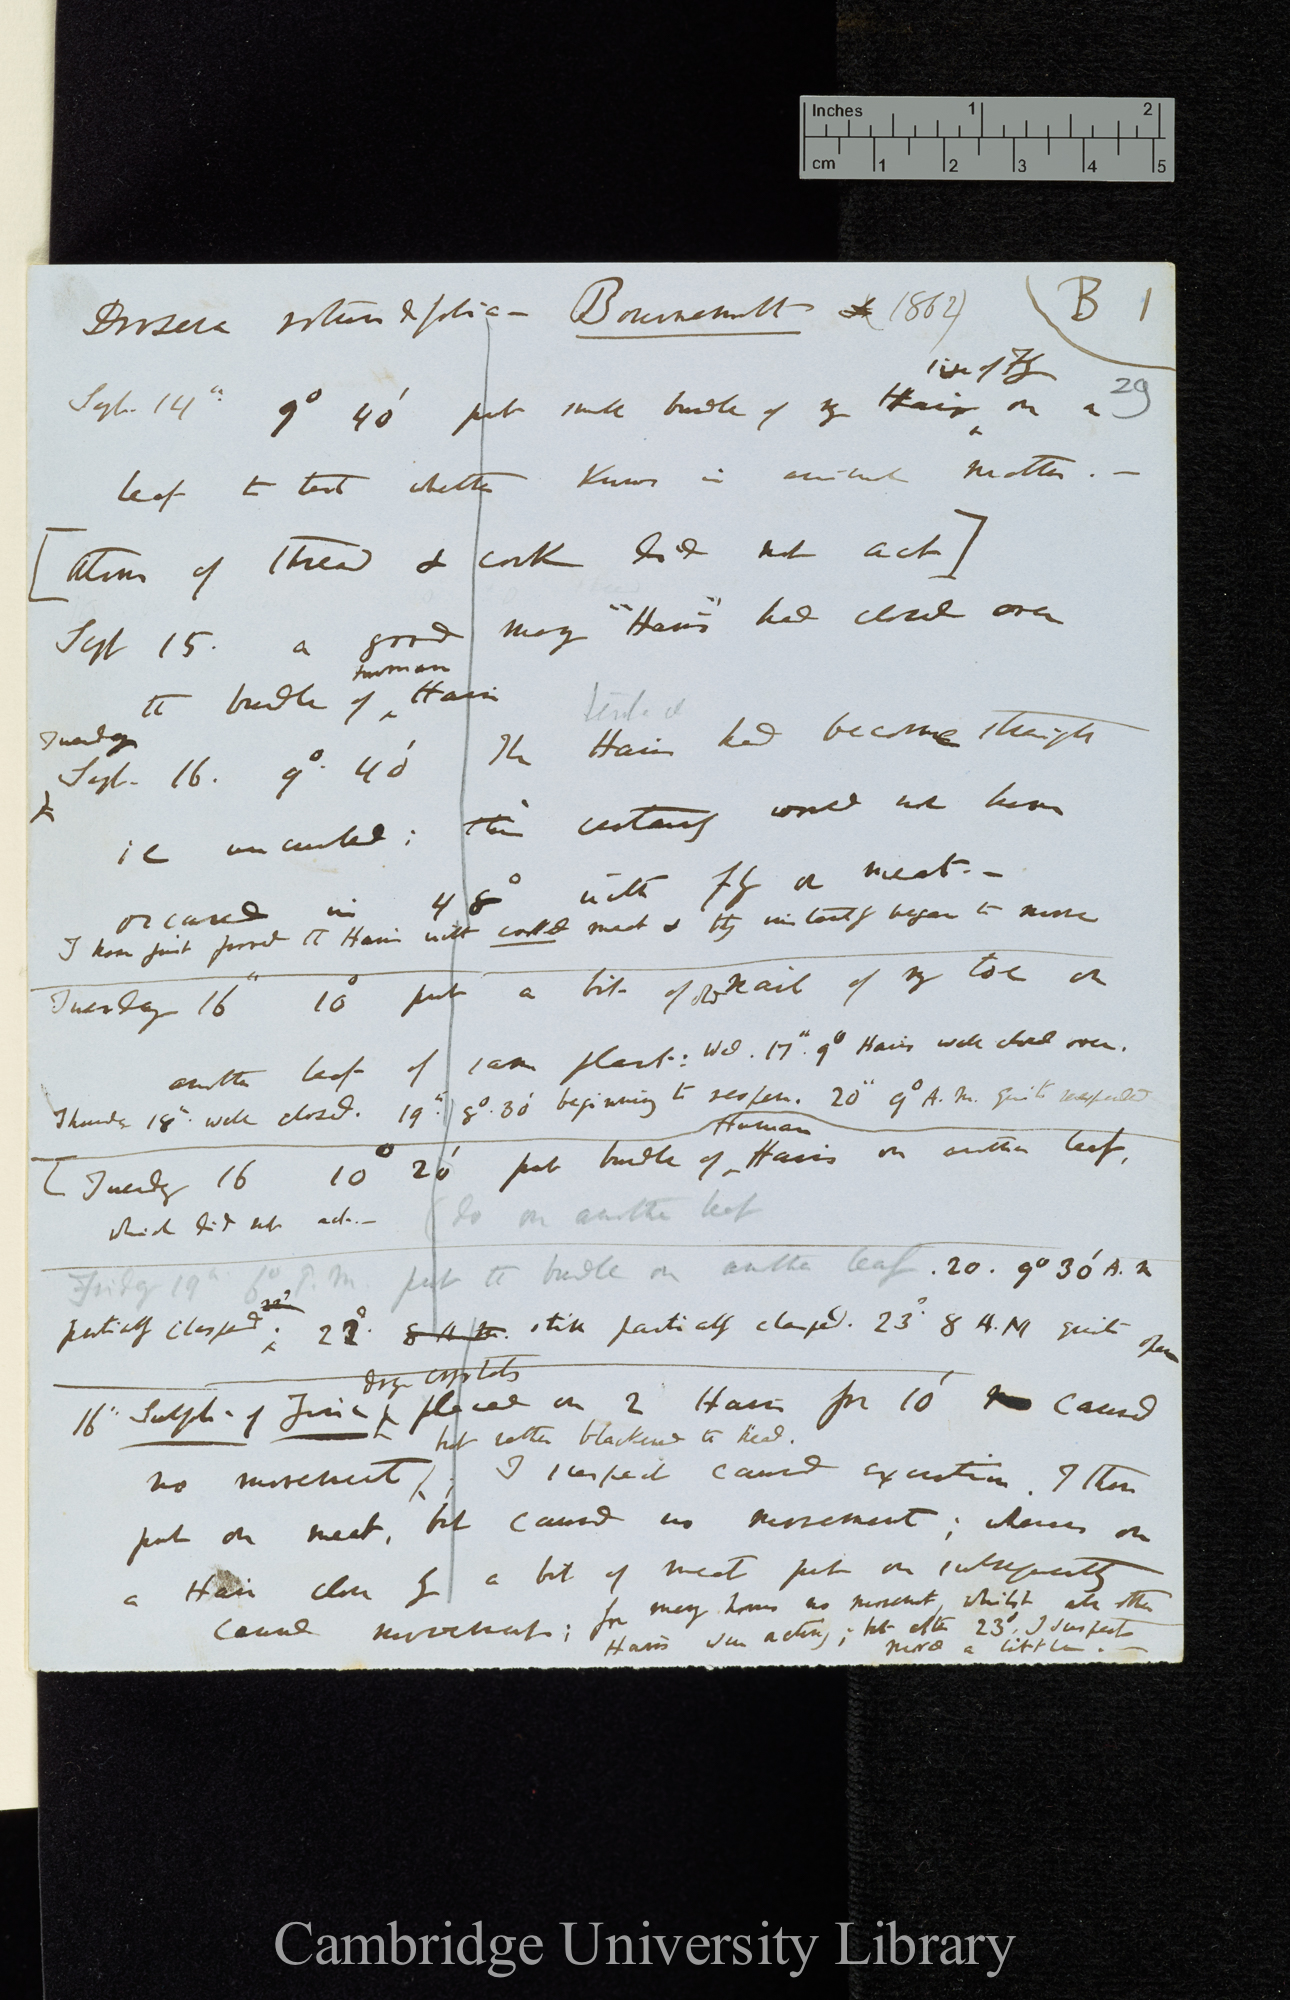 Inches 1 2
cm 1 2 3 4 5
Drosera rotundifolia — Bournemouth (1862)
B 1
29
size of Fly
Sept. 14th 9° 40' put small bundle of my Hair on a
leaf to test whether knows in animal matter. —
[Atoms of Thread & cork did not act]
Sept 15. a good many "Hairs" had closed over
human
the bundle of Hair
Tuesday
Sept. 16. 9° 40' The Hairs had become straight
ie uncurled; this certainly would not have
occured in 48° with fly or meat. —
I have just proved the Hairs with cooked meat & they instantly began to move
Tuesday 16th 10° put a bit of old nail of my toe on
another leaf of same plant: Wed. 17th. 9° Hairs well closed over.
Thursday 18th. well closed. 19th. 8° 30' beginning to reopen. 20th 9° A.M. quite reexpanded
Human
[Tuesday 16 10° 20' put bundle of Hairs on another leaf,
which did not act. — (do on another leaf
Friday 19th 6° P.M. put the bundle on another leaf. 20. 9° 30' A.M
partially clasped; 22°. 8 A.M. still partially clasped. 23° 8 A.M quite open
dry crystals
16th Sulph. of Zinc placed on 2 Hairs for 10' caused
but rather blackened the head.
no movement; I suspect caused exosmtion. I then
put on meat, but caused no movement; whereas on
a Hair close by a bit of meat put on subsequently
caused movement; for many hours no movement, whilst all other
Hairs were acting; but after 23° I suspect
moved a little. —
Cambridge University Library